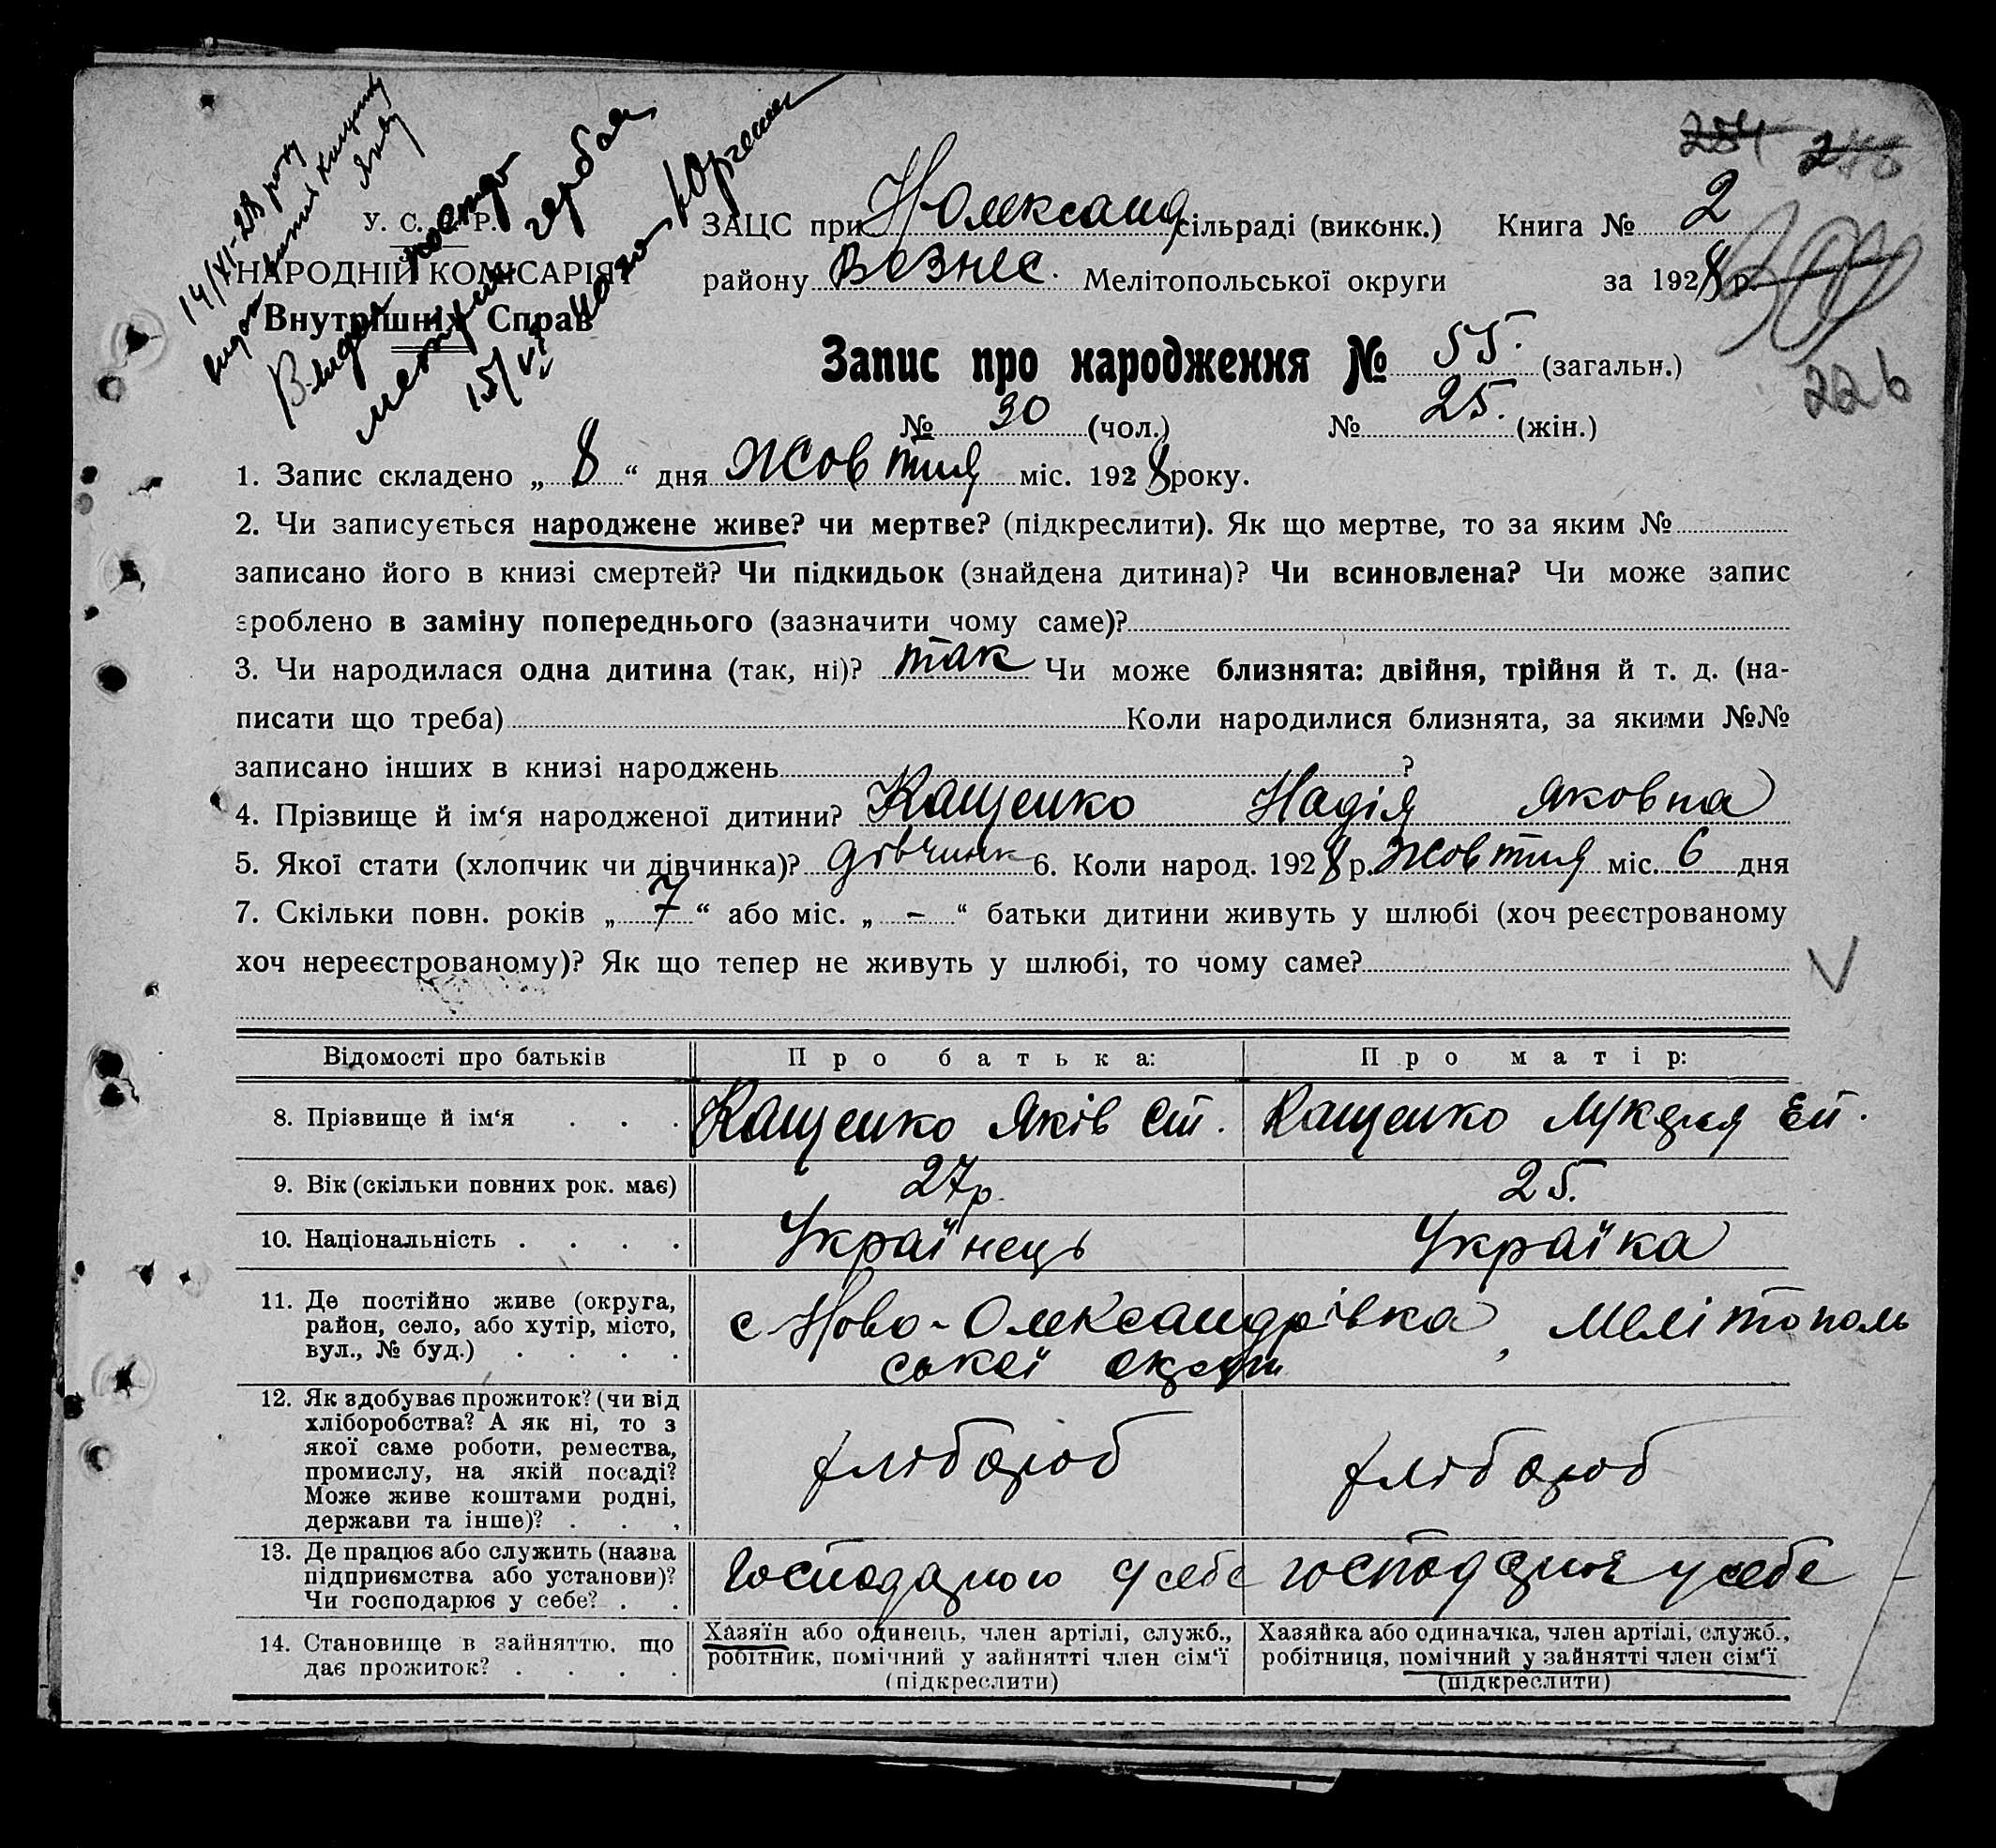 254 248
14/XI-28 року
У. С. Р. Р.
НАРОДНІЙ КОМІСАРІЯТ
Внутрішніх Справ
15/VI
ЗАЦС при Н Олександ сільраді (виконк.) Книга № 2
району Вознес. Мелітопольської округи за 1928 р.
Запис про народження № 55. (загальн.)
226
№ 30 (чол.) № 25. (жін.)
1. Запис складено „ 8 “ дня Жовтня міс. 1928 року.
2. Чи записується народжене живе? чи мертве? (підкреслити). Як що мертве, то за яким №
записано його в книзі смертей? Чи підкидьок (знайдена дитина)? Чи всиновлена? Чи може запис
зроблено в заміну попереднього (зазначити чому саме)?
3. Чи народилася одна дитина (так, ні)? так Чи може близнята: двійня, трійня й т. д. (на-
писати що треба) Коли народилися близнята, за якими №№
записано інших в книзі народжень ?
4. Прізвище й ім‘я народженої дитини? Кащенко Надія Яковна
5. Якої стати (хлопчик чи дівчинка)? дівчинк 6. Коли народ. 1928 р. Жовтня міс. 6 дня
7. Скільки повн. років „ 7 “ або міс. „ - “ батьки дитини живуть у шлюбі (хоч реєстрованому
хоч нереєстрованому)? Як що тепер не живуть у шлюбі, то чому саме?
V
Відомості про батьків Про батька: Про матір:
8. Прізвище й ім‘я . . . Кащенко Яків Єт. Кащенко Лукеря Еп.
9. Вік (скільки повних рок. має) 27р. 25.
10. Національність . . . . Українець Українка
11. Де постійно живе (округа,
район, село, або хутір, місто,
вул., № буд.) . . . .
с Ново-Олександрівка, Мелітополь
ської округи
12. Як здобуває прожиток? (чи від
хліборобства? А як ні, то з
якої саме роботи, ремества,
промислу, на якій посаді?
Може живе коштами родні,
держави та інше)? . . .
хлібороб хлібороб
13. Де працює або служить (назва
підприємства або установи)?
Чи господарює у себе? . .
Господарює у себе господарює у себе
14. Становище в зайняттю, що
дає прожиток? . . . .
Хазяїн або одинець, член артілі, служб.,
робітник, помічний у зайнятті член сім‘ї
(підкреслити)
Хазяйка або одиначка, член артілі, служб.,
робітниця, помічний у зайнятті член сім‘ї
(підкреслити)